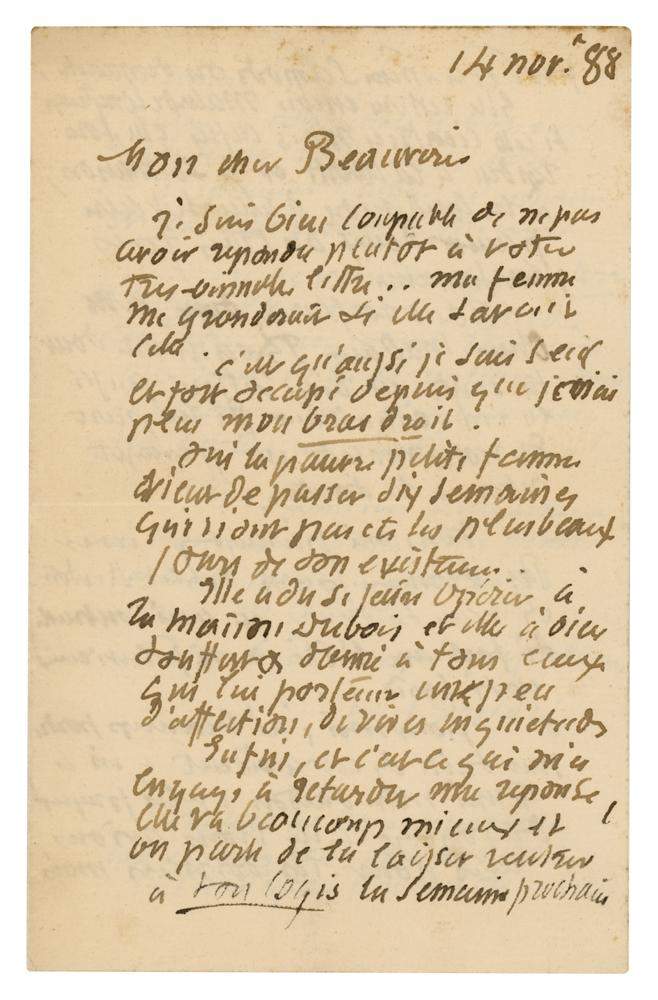 14 nov.^ 88
Mon cher Beauvois
Je suis bien coupable de ne pas
avoir repondu plutôt à votre
très-aimable lettre .. ma femme
me gronderait si elle savait
cela . c'est qu'aussi je suis seul
et fort occupé depuis que je n'ai
plus mon bras droit .
Oui la pauvre petite femme
vient de passer dix semaines
qui n'ont pas été les plus beaux
jours de son existence .
Elle a du se faire opérer à
la maison Dubois et elle a bien
souffert & donné à tous ceux
qui lui portent un peu
d'affection, de vives inquietudes
Enfin, et c'est ce qui m'a
engagé à retarder ma reponse,
elle va beaucoup mieux et
on parle de la laisser rentrer
à son logis la semaine prochain